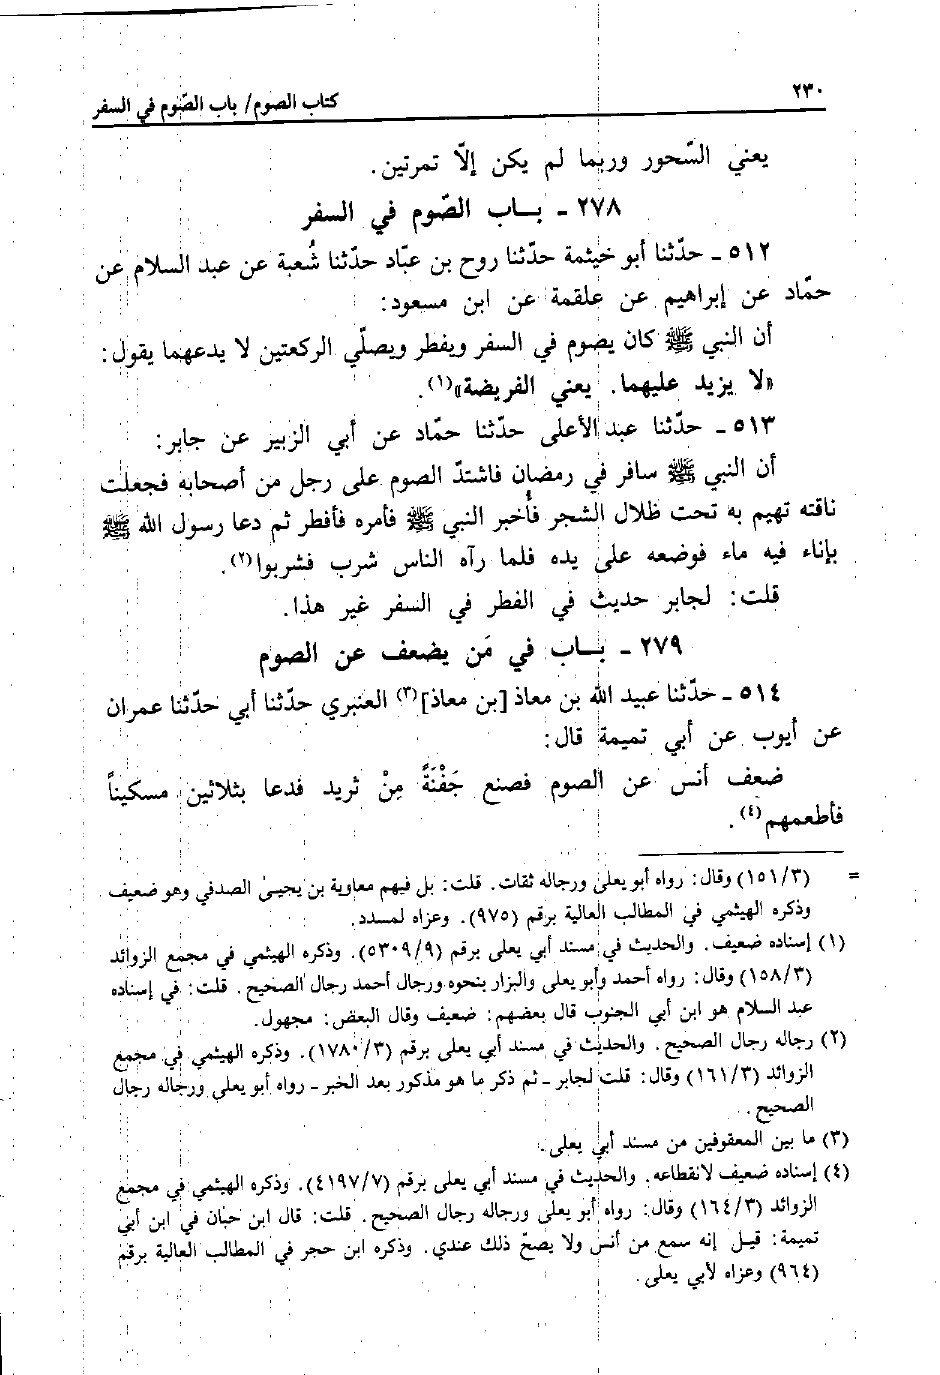 ٢٣٠
كتاب الصوم/ باب الصّوم في السفر
يعني السّحور وربما لم يكن إلاّ تمرتين.
٢٧٨ ـ بـاب الصّوم في السفر
٥١٢ ـ حدّثنا أبو خيثمة حدّثنا روح بن عبّاد حدّثنا شُعبة عن عبد السلام عن
حمّاد عن إبراهيم عن علقمة عن ابن مسعود:
أن النبي ﷺ كان يصوم في السفر ويفطر ويصلّي الركعتين لا يدعهما يقول:
«لا يزيد عليهما. يعني الفريضة»(١).
٥١٣ ـ حدّثنا عبد الأعلى حدّثنا حمّاد عن أبي الزبير عن جابر:
أن النبي ﷺ سافر في رمضان فاشتدّ الصوم على رجل من أصحابه فجعلت
ناقته تهيم به تحت ظلال الشجر فأُخبر النبي ﷺ فأمره فأفطر ثم دعا رسول الله ﷺ
بإناء فيه ماء فوضعه على يده فلما رآه الناس شرب فشربوا(٢).
قلت: لجابر حديث في الفطر في السفر غير هذا.
٢٧٩ ـ بـاب في مَن يضعف عن الصوم
٥١٤ ـ حدّثنا عبيد الله بن معاذ [بن معاذ](٣) العنبري حدّثنا أبي حدّثنا عمران
عن أيوب عن أبي تميمة قال:
ضعف أنس عن الصوم فصنع جَفْنَةً مِنْ ثريد فدعا بثلاثين مسكيناً
فأطعمهم(٤).
= (١٥١/٣) وقال: رواه أبو يعلى ورجاله ثقات. قلت: بل فيهم معاوية بن يحيىٰ الصدفي وهو ضعيف
وذكره الهيثمي في المطالب العالية برقم (٩٧٥). وعزاه لمسدد.
(١) إسناده ضعيف. والحديث في مسند أبي يعلى برقم (٥٣٠٩/٩). وذكره الهيثمي في مجمع الزوائد
(١٥٨/٣) وقال: رواه أحمد وأبو يعلى والبزار بنحوه ورجال أحمد رجال الصحيح. قلت: في إسناده
عبد السلام هو ابن أبي الجنوب قال بعضهم: ضعيف وقال البعض: مجهول.
(٢) رجاله رجال الصحيح. والحديث في مسند أبي يعلى برقم (١٧٨٠/٣). وذكره الهيثمي في مجمع
الزوائد (١٦١/٣) وقال: قلت لجابر ـ ثم ذكر ما هو مذكور بعد الخبر ـ رواه أبو يعلى ورجاله رجال
الصحيح.
(٣) ما بين المعقوفين من مسند أبي يعلى.
(٤) إسناده ضعيف لانقطاعه. والحديث في مسند أبي يعلى برقم (٤١٩٧/٧). وذكره الهيثمي في مجمع
الزوائد (١٦٤/٣) وقال: رواه أبو يعلى ورجاله رجال الصحيح. قلت: قال ابن حبّان في ابن أبي
تميمة: قيـل إنه سمع من أنس ولا يصحّ ذلك عندي. وذكره ابن حجر في المطالب العالية برقم
(٩٦٤) وعزاه لأبي يعلى.